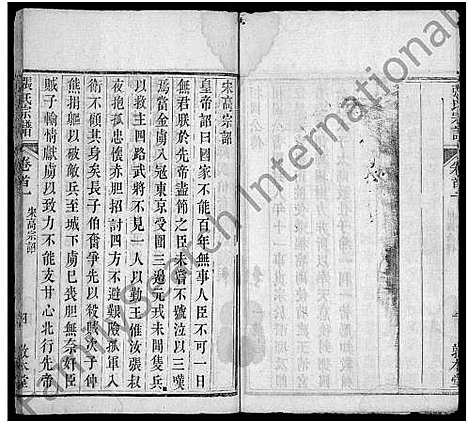 宋高宗詔
皇帝詔曰國家不能百年無事人臣不可一日
無君朕於先帝盡節之臣未嘗不號泣以三嘆
焉當金虜入寇東京受圍三邊元戎未聞隻兵
以救主四路武將不見一人以勤王惟汝張叔
夜抱孤忠懷赤胆招討四方不避艱險孤軍入
衛不顧其身矣長子伯奮爭先以殺賊次子仲
熊捐軀以破敵兵至城下虜已喪胆無奈奸臣
賊子輸情獻虜以致力不能支甘心北行先帝
張氏宗譜
卷首一
宋高宗詔
四
敦本堂
張氏宗譜
卷首一
敦本堂
FamilySearch International